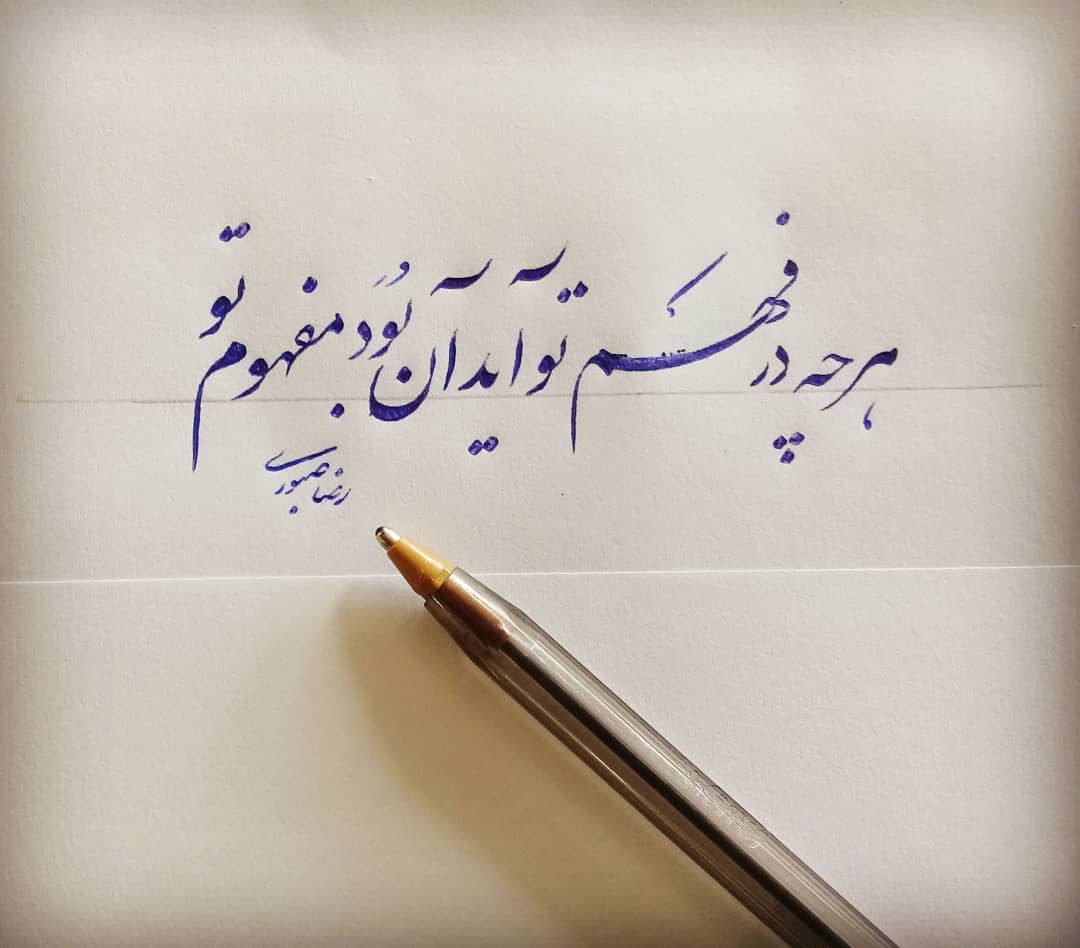 هرچه در فهم تو آید آن بُوَد مفهوم تو
رضا صبوری